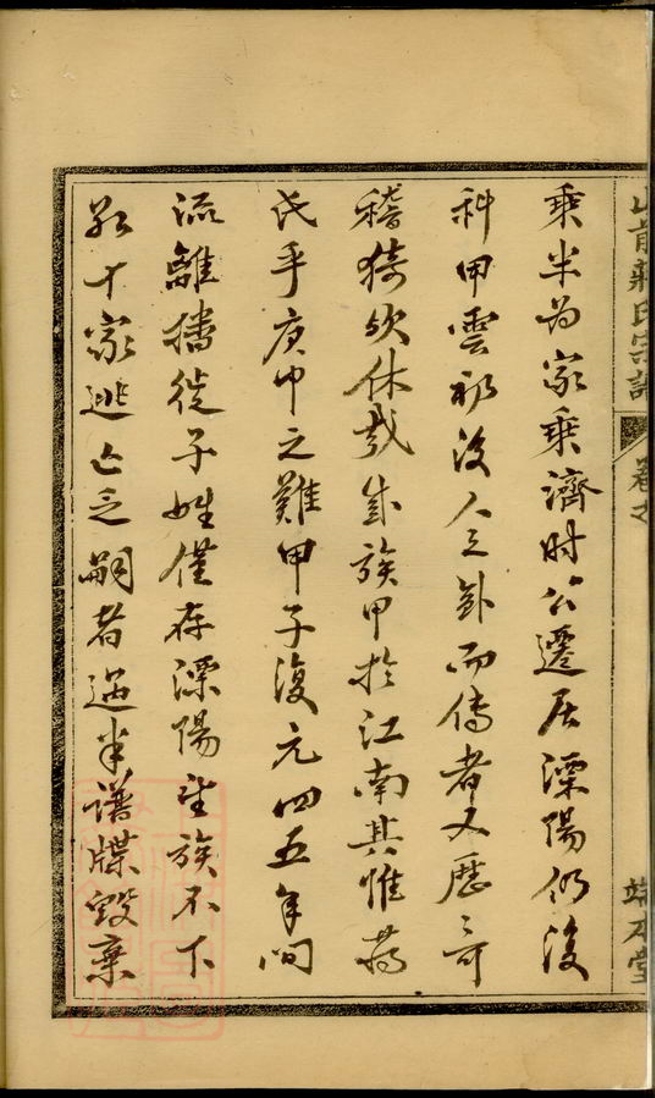 山前蔣氏宗譜 卷之 端本堂
乘半为家乘濟时公遷居溧陽仍後
科甲雲礽後人之卦而傳者又歷〻可
稽猗欤休哉盛族甲於江南其惟蔣
氏乎庚申之難甲子復元四五年间
流離播徙子姓僅存溧陽望族不下
数十家逃亡乏嗣者過半譜牒毀棄